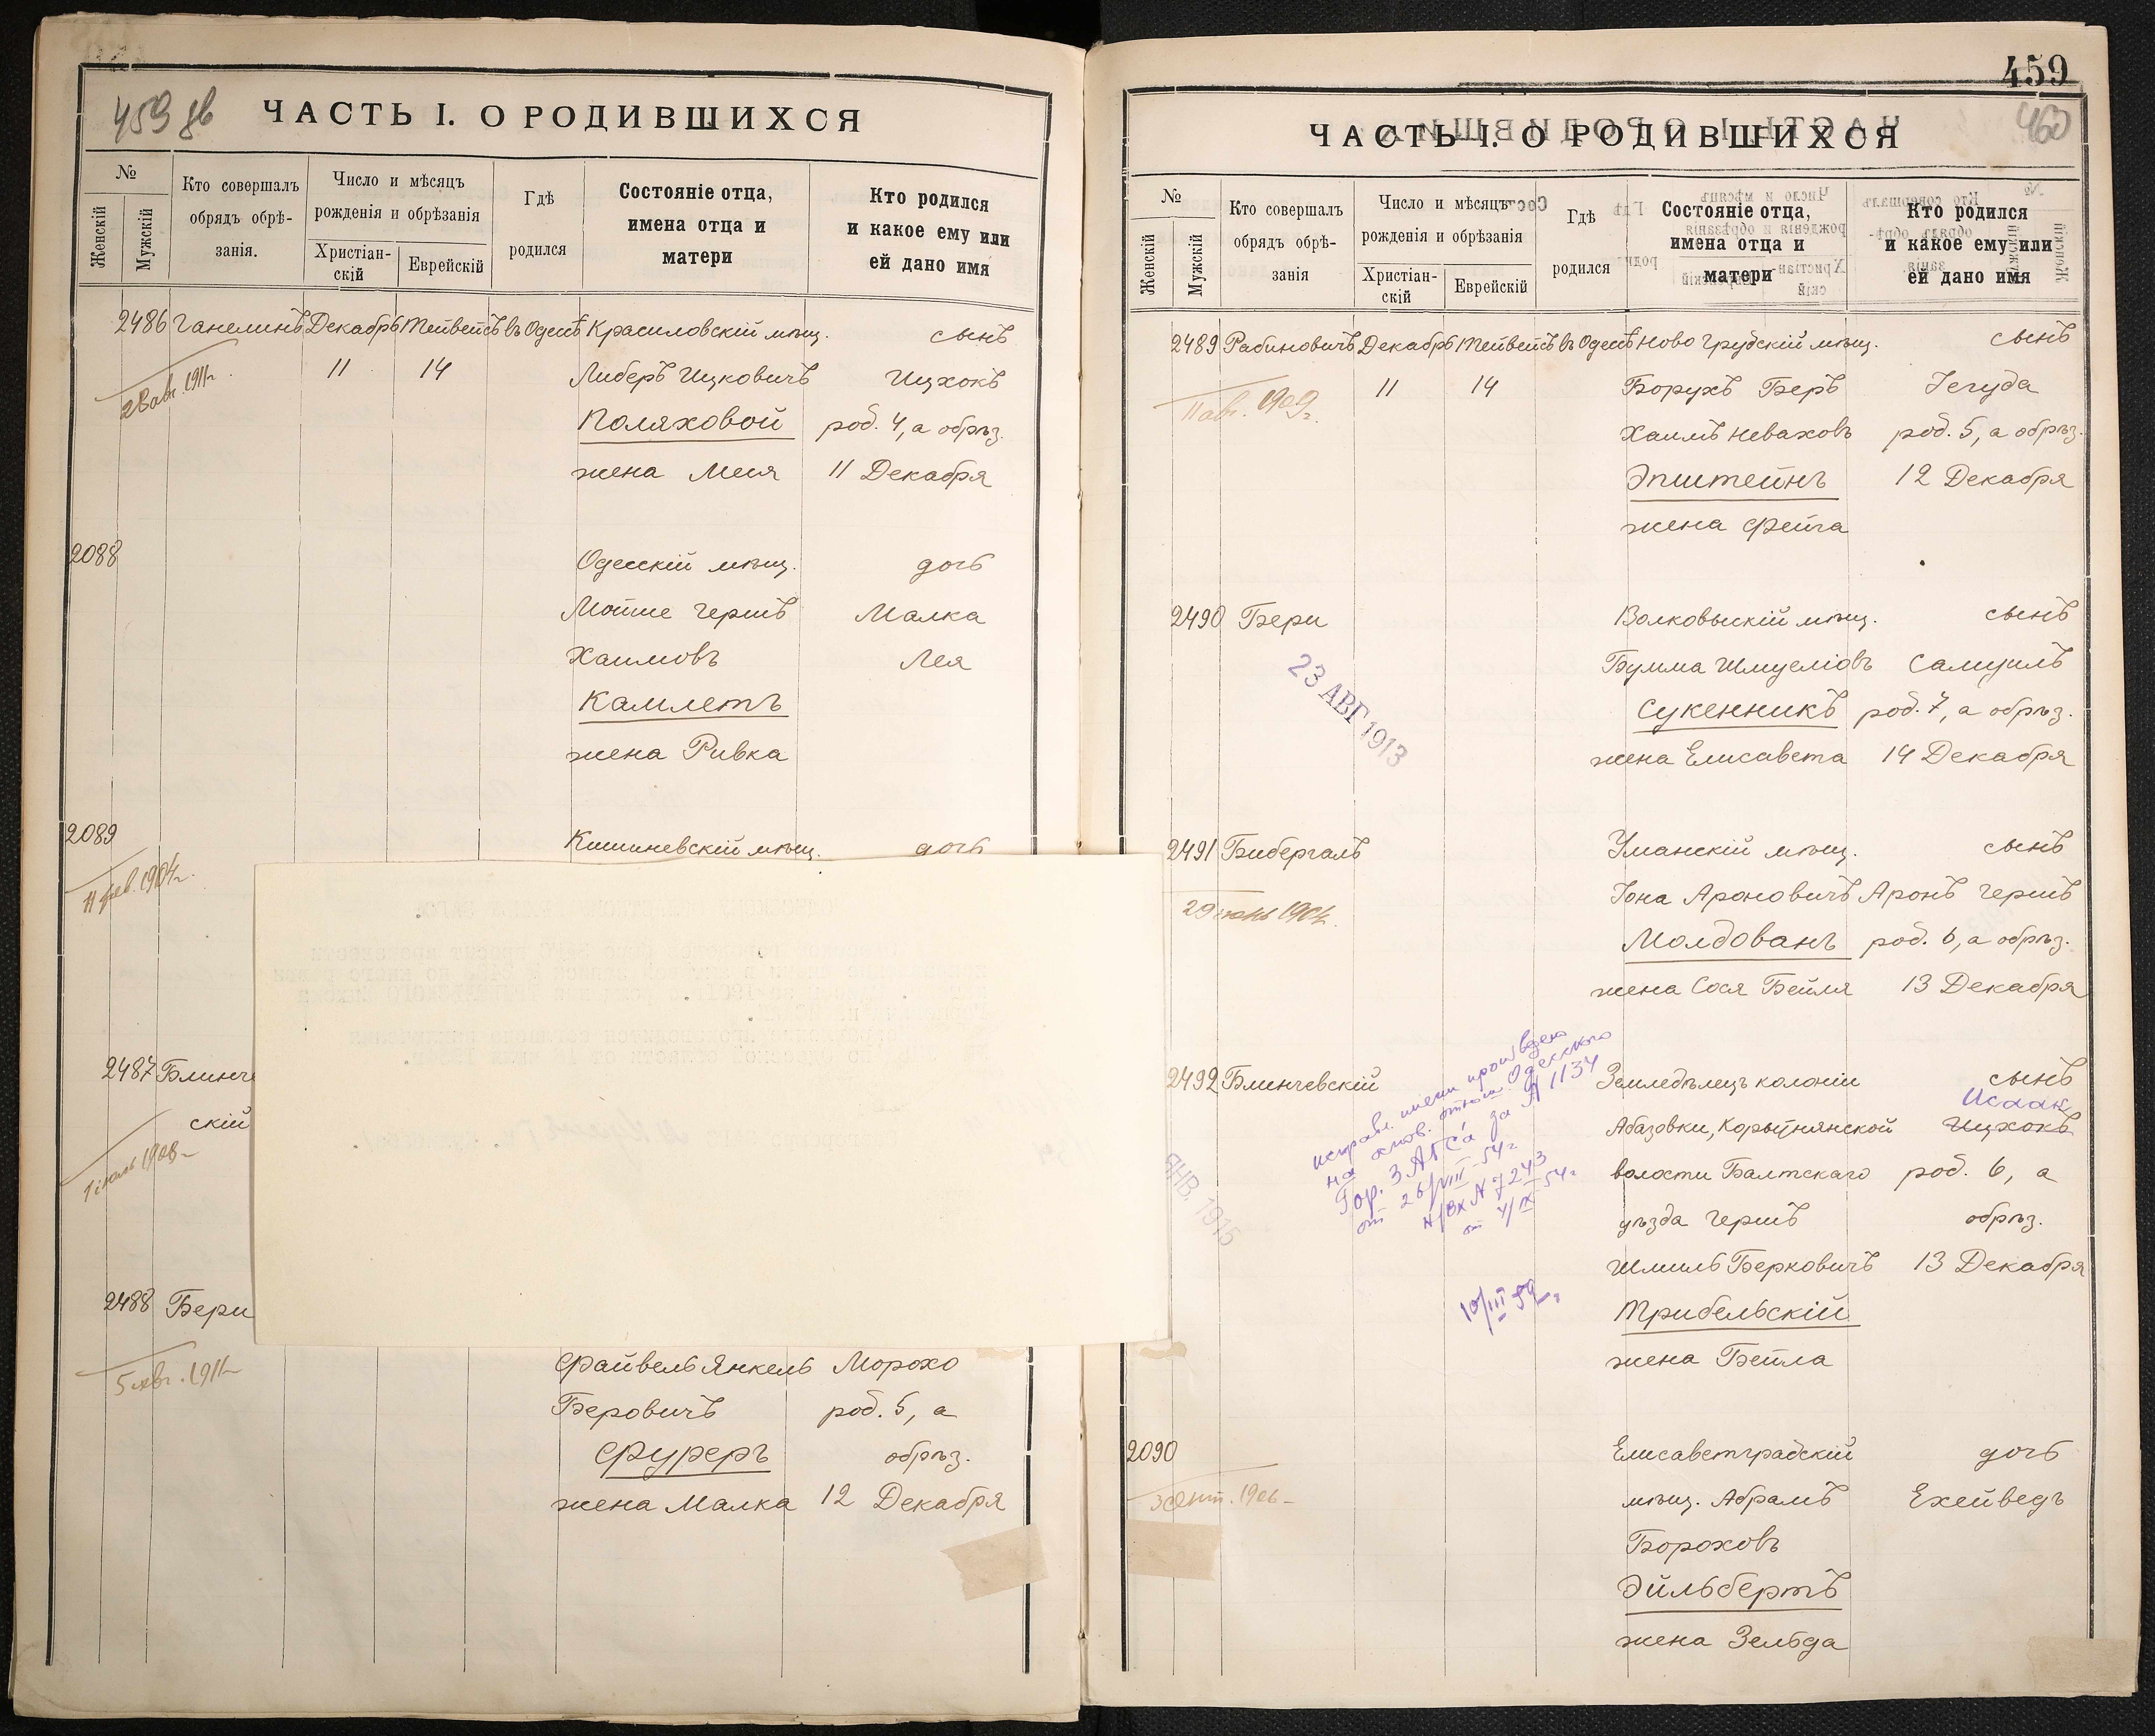 459 об
ЧАСТЬ I. О РОДИВШИХСЯ
№
Женскій
Мужскій
Кто совершалъ
обрядъ обрѣ-
занія.
Число и мѣсяцъ
рожденія и обрѣзанія
Христіан-
скій
Еврейскій
Гдѣ
родился
Состояніе отца,
имена отца и
матери
Кто родился
и какое ему или
ей дано имя
2486 Ганелинъ Декабрь Тейвейсъ въ Одессѣ Красиловскій мѣщ. сынъ
28 авг. 1911 г. 11 14 Либеръ Ицковичъ Ицхокъ
Поляховой род. 4, а обрѣз.
жена Меся 11 Декабря
2088 Одесскій мѣщ. дочь
Мотше Гершъ Малка
Хаимовъ Лея
Камлетъ
жена Ривка
2089 Кишиневскій мѣщ. дочь
11 фев. 1904 г.
2487 Блинче
скій
1908
2488 Бери
Файвель Янкель Морохо
5 авг. 1911 Беровичъ род. 5, а
Фуреръ обрѣз.
жена Малка 12 Декабря
459
460
ЧАСТЬ I. О РОДИВШИХСЯ
№
Женскій
Мужскій
Кто совершалъ
обрядъ обрѣ-
занія
Число и мѣсяцъ
рожденія и обрѣзанія
Христіан-
скій
Еврейскій
Гдѣ
родился
Состояніе отца,
имена отца и
матери
Кто родился
и какое ему или
ей дано имя
2489 Рабиновичъ Декабрь Тейвейсъ въ Одессѣ Новогрудскій мѣщ. сынъ
11 авг. 1909 г. 11 14 Борухъ Беръ Іегуда
Хаимъ Неваховъ род. 5, а обрѣз.
Эпштейнъ 12 Декабря
жена Фейга
2490 Бери Волковыскій мѣщ. сынъ
23 АВГ 1913
Бумма Шмуеліовъ Самуилъ
Сукенникъ род. 7, а обрѣз.
жена Елисавета 14 Декабря
2491 Бибергаль Уманскій мѣщ. сынъ
29 іюнь 1904 Іона Ароновичъ Аронъ Гершъ
Молдованъ род. 6, а обрѣз.
жена Сося Бейля 13 Декабря
2492 Блинчевскій Земледѣлецъ колоніи сынъ
Исаак
Абазовки, Корытнянской Ицхокъ
волости Балтскаго род. 6, а
уѣзда Гершъ обрѣз.
Шмиль Берковичъ 13 Декабря
Трибельскій
жена Бейла
исправл. имени произведено
на основ. отнош. Одесского
Гор. ЗАГС'а за № 1134
от 26/VIII-54 г
Н/Вх № 7243
от 4/IX 54 г
10/III-59 г.
ЯНВ. 1915
2090 Елисаветградскій дочь
3 Сент. 1906 мѣщ. Абрамъ Ехейведъ
Бороховъ
Эйльбертъ
жена Зельда